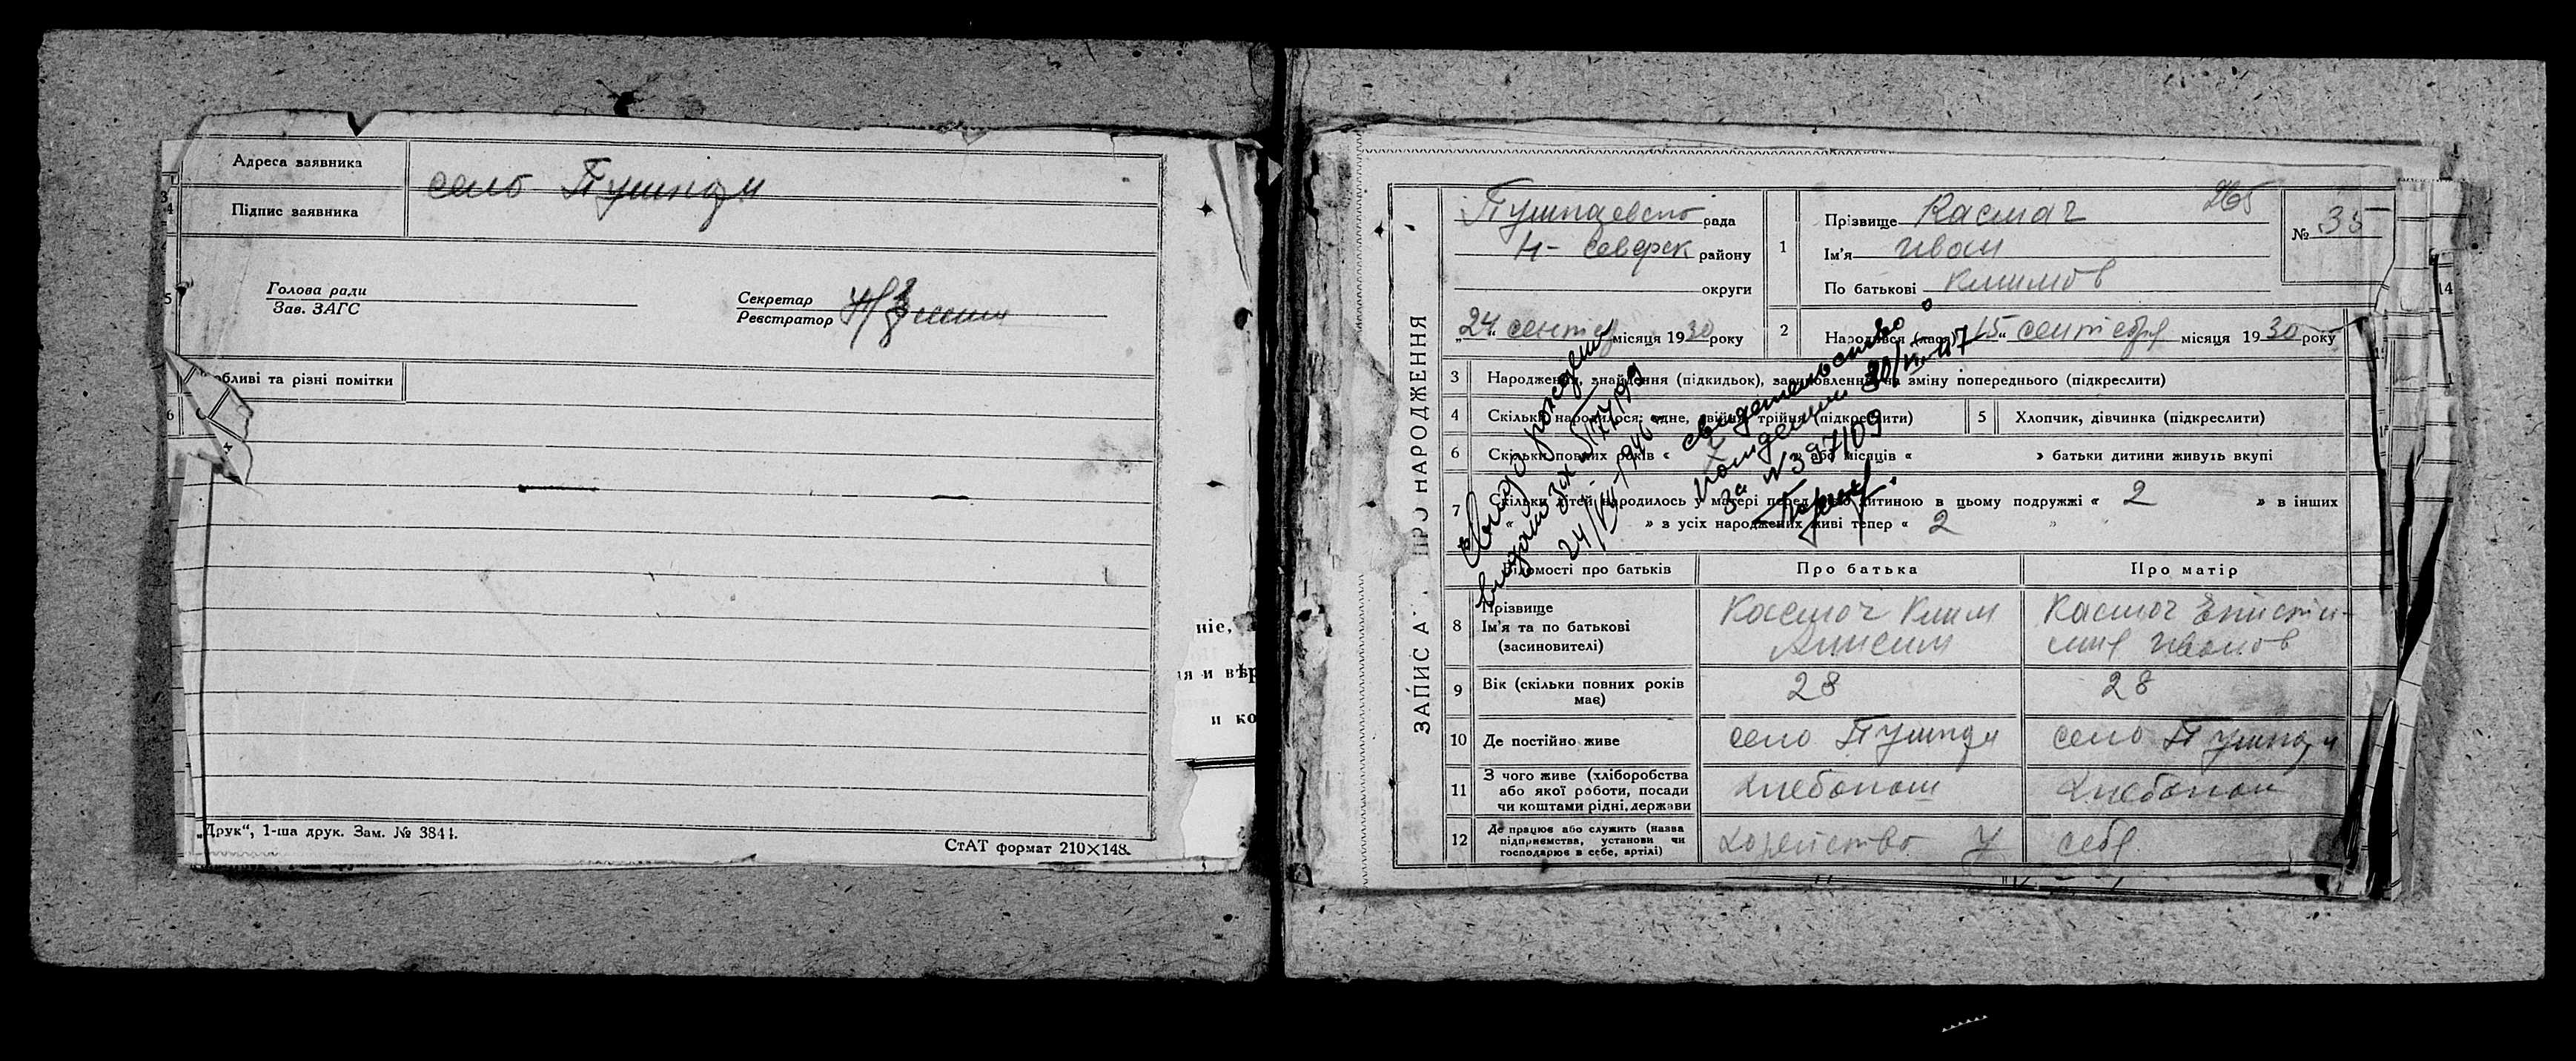 Адреса заявника
село Пушкари
Підпис заявника
Голова ради
Зав. ЗАГС
Секретар
Реєстратор
бливі та різні помітки
„Друк“, 1-ша друк. Зам. № 3841.
СтАТ формат 210×148.
ніе,
и вѣр
и ко
ЗАПИС А ПРО НАРОДЖЕННЯ
рада
Н- Северск району
округи
„24“ сентяб місяця 1930 року
1
Прізвище Касмач
265
Ім'я Иван
По батькові Климов
№ 35
2
Народився (лась) „15“ сентября місяця 1930 року
3 Народження, знайдення (підкидьок), засиновлення на зміну попереднього (підкреслити)
4 Скільки народилося: одне, двійня, трійня (підкреслити)
5 Хлопчик, дівчинка (підкреслити)
6 Скільки повних років « » або місяців « » батьки дитини живуть вкупі
7 Скільки дітей народилось у матері перед цією дитиною в цьому подружжі « 2 » в інших
« » в усіх народжених живі тепер « 2 »
свидетельство о
рождении
за № 397109
Відомості про батьків
Про батька
Про матір
8
Прізвище
Ім'я та по батькові
(засиновителі)
Касмач Клим
Анисим
Касмач Еписти-
мия Иванов
9
Вік (скільки повних років
має)
28
28
10 Де постійно живе
село Пушкари
село Пушкари
11
З чого живе (хліборобства
або якої роботи, посади
чи коштами рідні, держави
Хлебопаш
Хлебопаш
12
Де працює або служить (назва
підприємства, установи чи
господарює в себе, артілі)
хозяйство у
себя
14